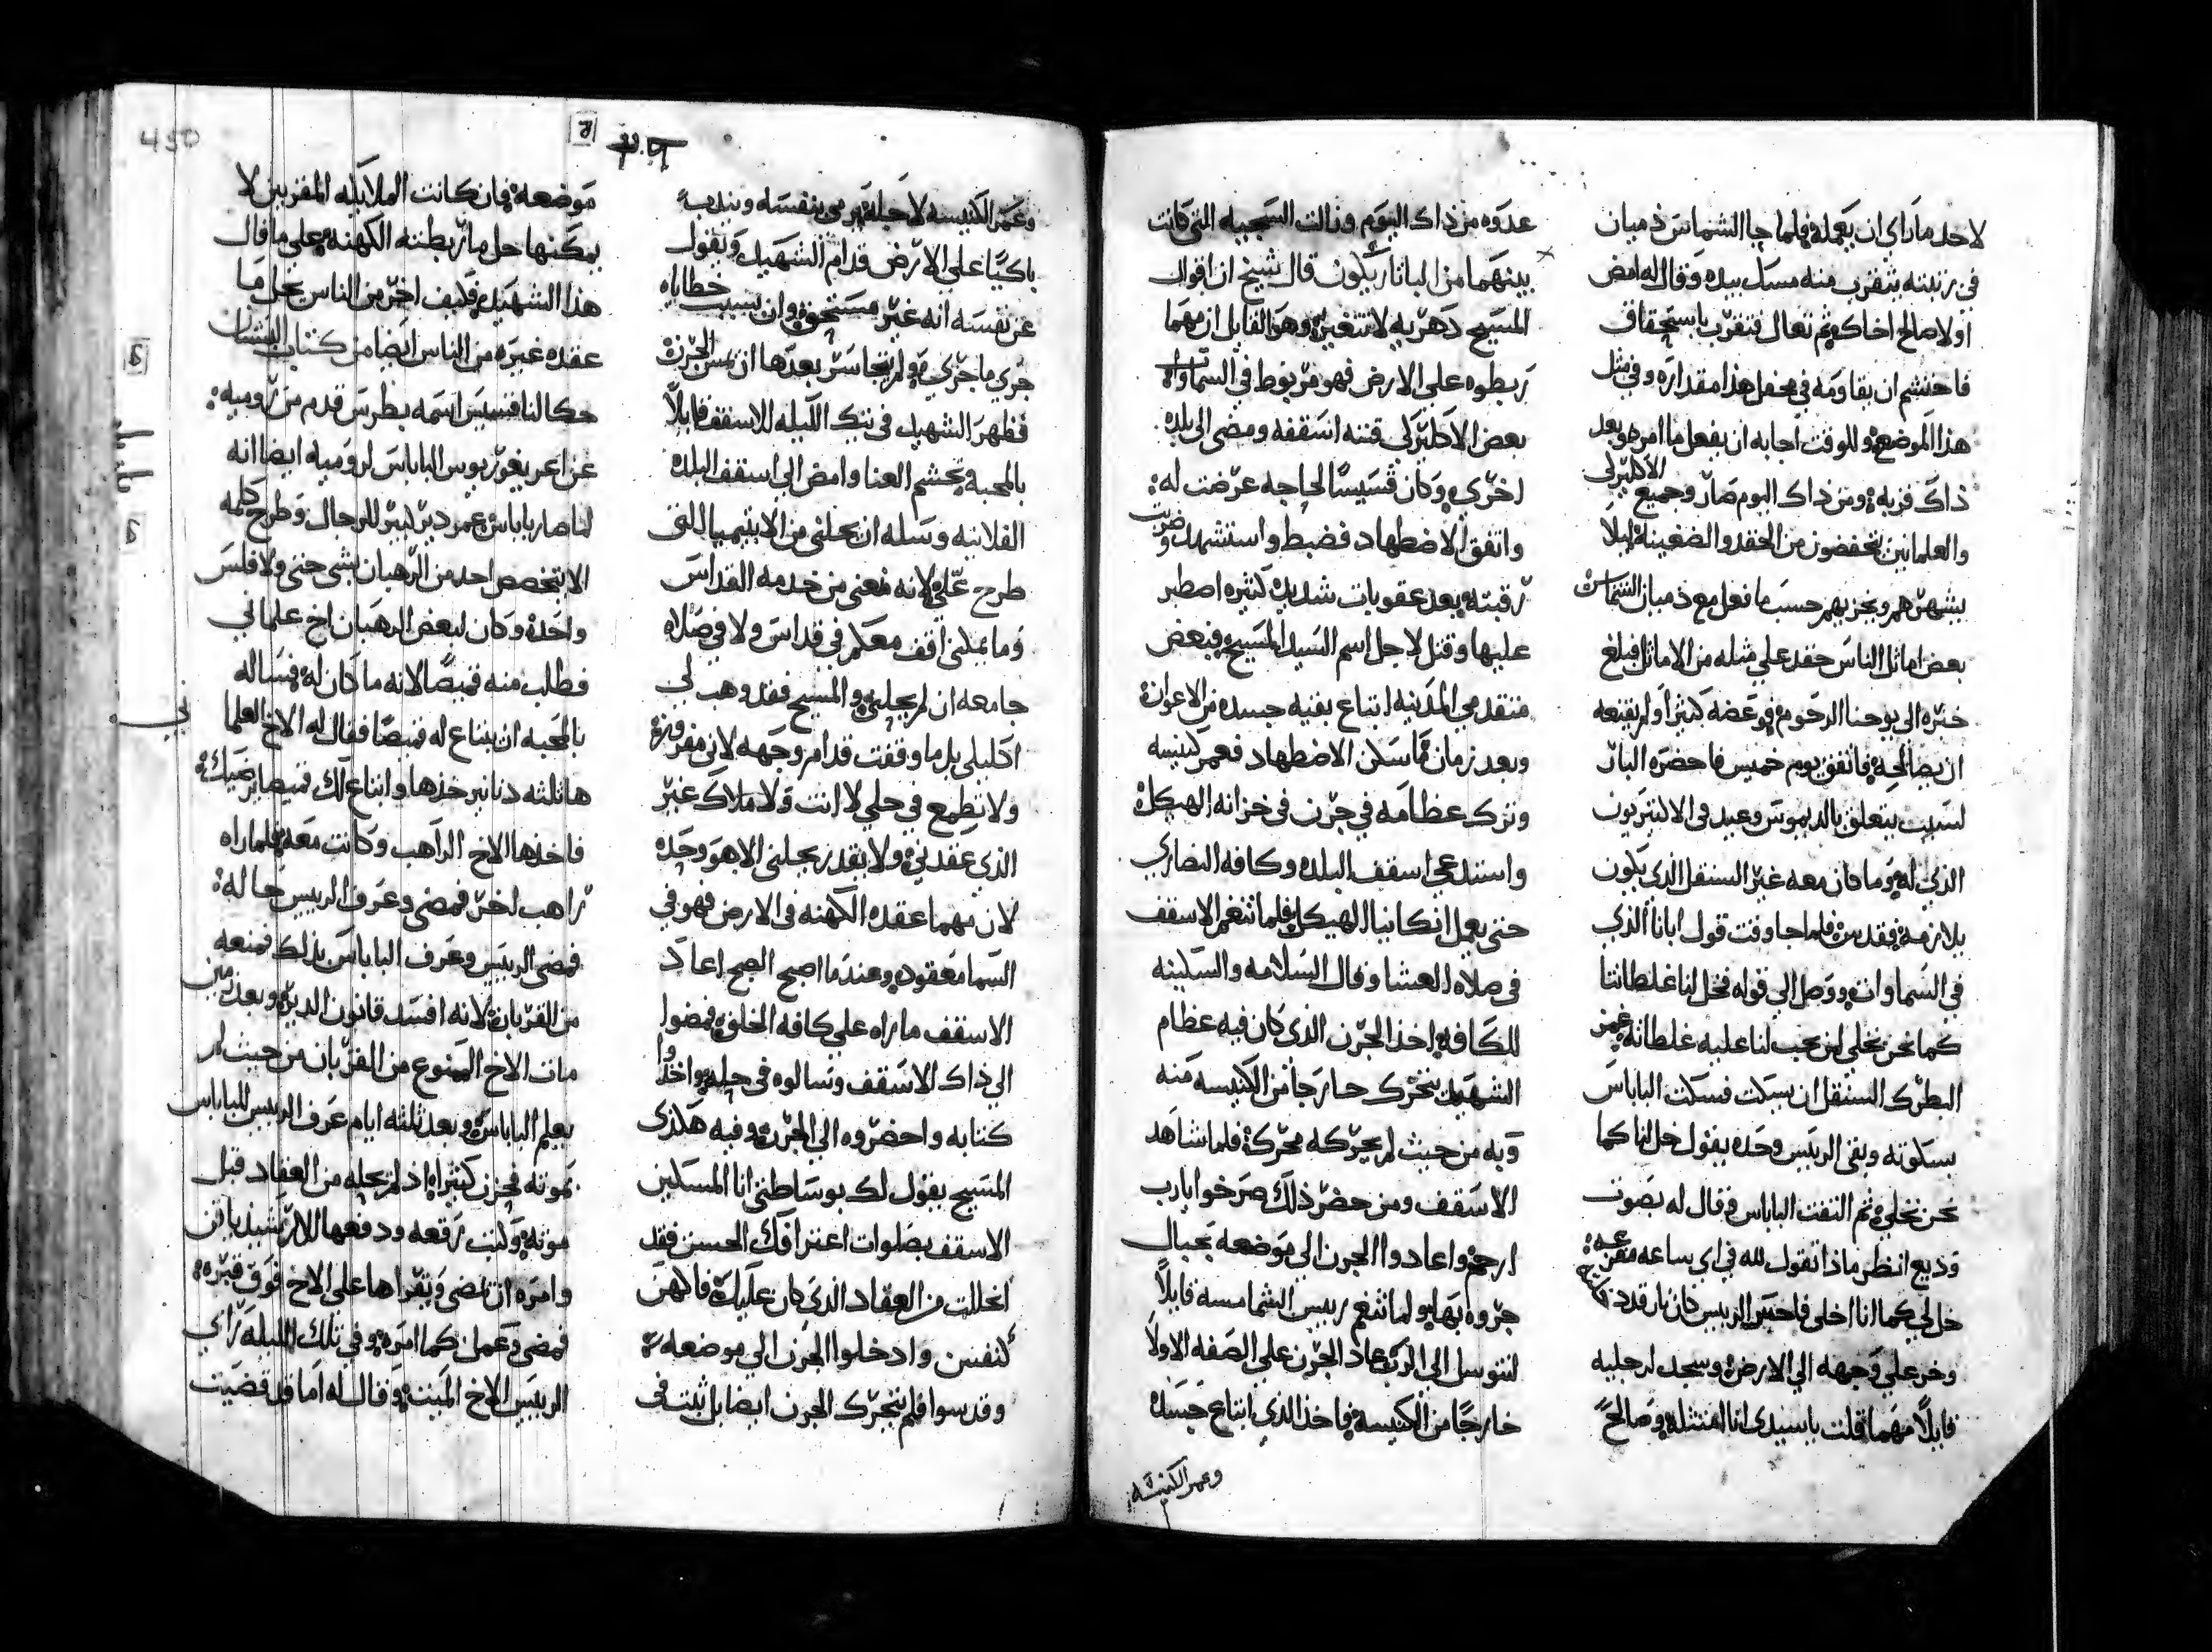 لاحد ماراي ان يعمله فلما جا الشماس ذميان
في رتبته يتقرب منه مسك بيده وقال له امض
اولا صالح اخاك ثم تعال فتقرب باستحقاق
فاحتشم ان يقاومه في محفل هذا مقداره وفي مثل
هذا الموضع وللوقت اجابه ان يفعل ما امره وبعد
ذاك قربه ومن ذاك اليوم صار وجميع الاكليرلي
والعلمانيين يتحفضون من الحقد والضغينه ليلا
يشهرهم ويخزيهم حسب ما فعل مع ذميان الشماس
بعض اماثل الناس حقد علي مثله من الاماثل فبلغ
خبره الي يوحنا الرحوم فوعضه كثيرا ولم يقنعه
ان يصالحه فاتفق يوم خميس فاحضره البار
لسبب يتعلق بالديموس وعيد في الالنتريون
الذي له وما كان معه غير السنقل الذي يكون
يلازمه فقدس فلما جا وقت قول ابانا الذي
في السماوات ووصل الي قوله فخل لنا غلطاتنا
كما نحن نخلي لمن يجب لنا عليه غلطاته غمز
البطرك السنقل ان يسكت فسكت الباباس
بسكوته وبقي الريس وحده يقول خل لنا كما
نحن نخلي ثم التفت الباباس وقال له بصوت
وديع انظر ماذا تقول لله في اي ساعه مفزعه
خل لي كما انا اخلي فاحس الرييس كان نار قد
وخر علي وجهه الي الارض وسجد لرجليه
قايلا مهما قلت ياسيدي انا امتثله وصالح
عدوه من ذاك اليوم وزالت السجيه التي كانت
بينهما من الباثاريكون قال شيخ ان اقوال
المسيح دهريه لا تتغير وهو القايل ان مهما
ربطوه علي الارض فهو مربوط في السماوات
بعض الاكليرلي قتنه اسقفه ومضى الي بلده
اخري وكان قسيسا لحاجه عرضت له
واتفق الاضطهاد فضبط واستشهد وضربت
رقبته بعد عقوبات شديده كثيره اصطبر
عليها وقتل لاجل اسم السيد المسيح فبعض
متقدمي المدينه ابتاع بقيه جسده من الاعوان
وبعد زمان ما سكن الاضطهاد فعمر كنيسه
وترك عظامه في جرن في خزانه الهيكل
واستدعي اسقف البلده وكافه النصاري
حتي يعمل انكانيا الهيكل فلما تنغم الاسقف
في صلاه العشا وقال السلامه والسكينه
للكافه اخذ الجرن الذي كان فيه عظام
الشهيد يتحرك خارجا من الكنيسه منه
وبه من حيث لم يحركه محرك فلما شاهد
الاسقف ومن حضر ذلك صرخوا يارب
ارحم واعادوا الجرن الي موضعه بحبال
جروه بها ولما تنغم رييس الشمامسه قايلا
لنتوسل الي الرب عاد الجرن علي الصفه الاولا
خارجا من الكنيسه فاخذ الذي ابتاع جسده
وعمر الكنيسه
وعمر الكنيسه لاجله يرمي بنفسه ويندب
باكيا على الارض قدام الشهيد ويقول
عن نفسه انه غير مستحق وان بسبب خطاياه
جري ما جري ولم يتجاسر بعدها ان يمس الجرن
فظهر الشهيد في تيك الليله للاسقف قايلا
بالمحبه تجشم العنا وامض الي اسقف البلده
الفلانيه وسله ان يحلني من الابتيميا التي
طرح علي لانه منعني من خدمه القداس
وما يمكنى اقف معكم في قداس ولا في صلاه
جامعه ان لم يحلني والمسيح فقد وهب لي
اكليلي بل ما وقفت قدام وجهه لاني مفروز
ولا تطمع في حلي لا انت ولا ملاك غير
الذي عقدني ولا يقدر يحلني الا هو وحده
لان مهما عقده الكهنه في الارض فهو في
السما معقود وعندما اصبح الصبح اعاد
الاسقف ما راه علي كافه الخلق فمضوا
الي ذاك الاسقف وسالوه في حله واخذوا
كتابه واحضروه الي الجرن وفيه هكذي
المسيح يقول لك بوساطتي انا المسكين
الاسقف بصلوات اعترافك الحسن فقد
انحللت من العقاد الذي كان عليك فاكهن
كنفسن وادخلوا الجرن الي موضعه
وقدسوا فلم يتحرك الجرن ايضا بل ثبت في
450
موضعه فان كانت الملايكه المقربين لا
يمكنها حل ما ربطته الكهنه علي ما قال
هذا الشهيد فكيف اخر من الناس يحل ما
عقده غيره من الناس ايضا من كتاب البستان
حكا لنا قسيس اسمه بطرس قدم من روميه
عن اغريغوريوس الباباس لروميه ايضا انه
لما صار باباس عمر دير كبير للرجال وطرح كلمه
الا يتخصص احد من الرهبان بشى حتي ولا فلس
واحد وكان لبعض الرهبان اخ علماني
فطلب منه قميصا لانه ما كان له فساله
بالمحبه ان يبتاع له قميصا فقال له الاخ العلما
ني
ها ثلثه دنانير خذها وابتاع لك قميصا يرضيك
فاخذها الاخ الراهب وكانت معه فلما راه
راهب اخر فمضي وعرف الرييس حاله
فمضي الرييس وعرف الباباس بذلك فمنعه
من القربان لانه افسد قانون الدير وبعد
مات الاخ الممنوع من القربان من حيث لم
يعلم الباباس وبعد ثلثه ايام عرف الرييس للباباس
بموته فحزن كثيرا اذ لم يحله من العقاد قبل
موته وكتب رقعه ودفعها للارشيدياقن
وامره ان يمضي ويقراها على الاخ فوق قبره
فمضي وعمل كما امره وفي تلك الليله راي
الرييس الاخ الميت وقال له اما قد قضيت